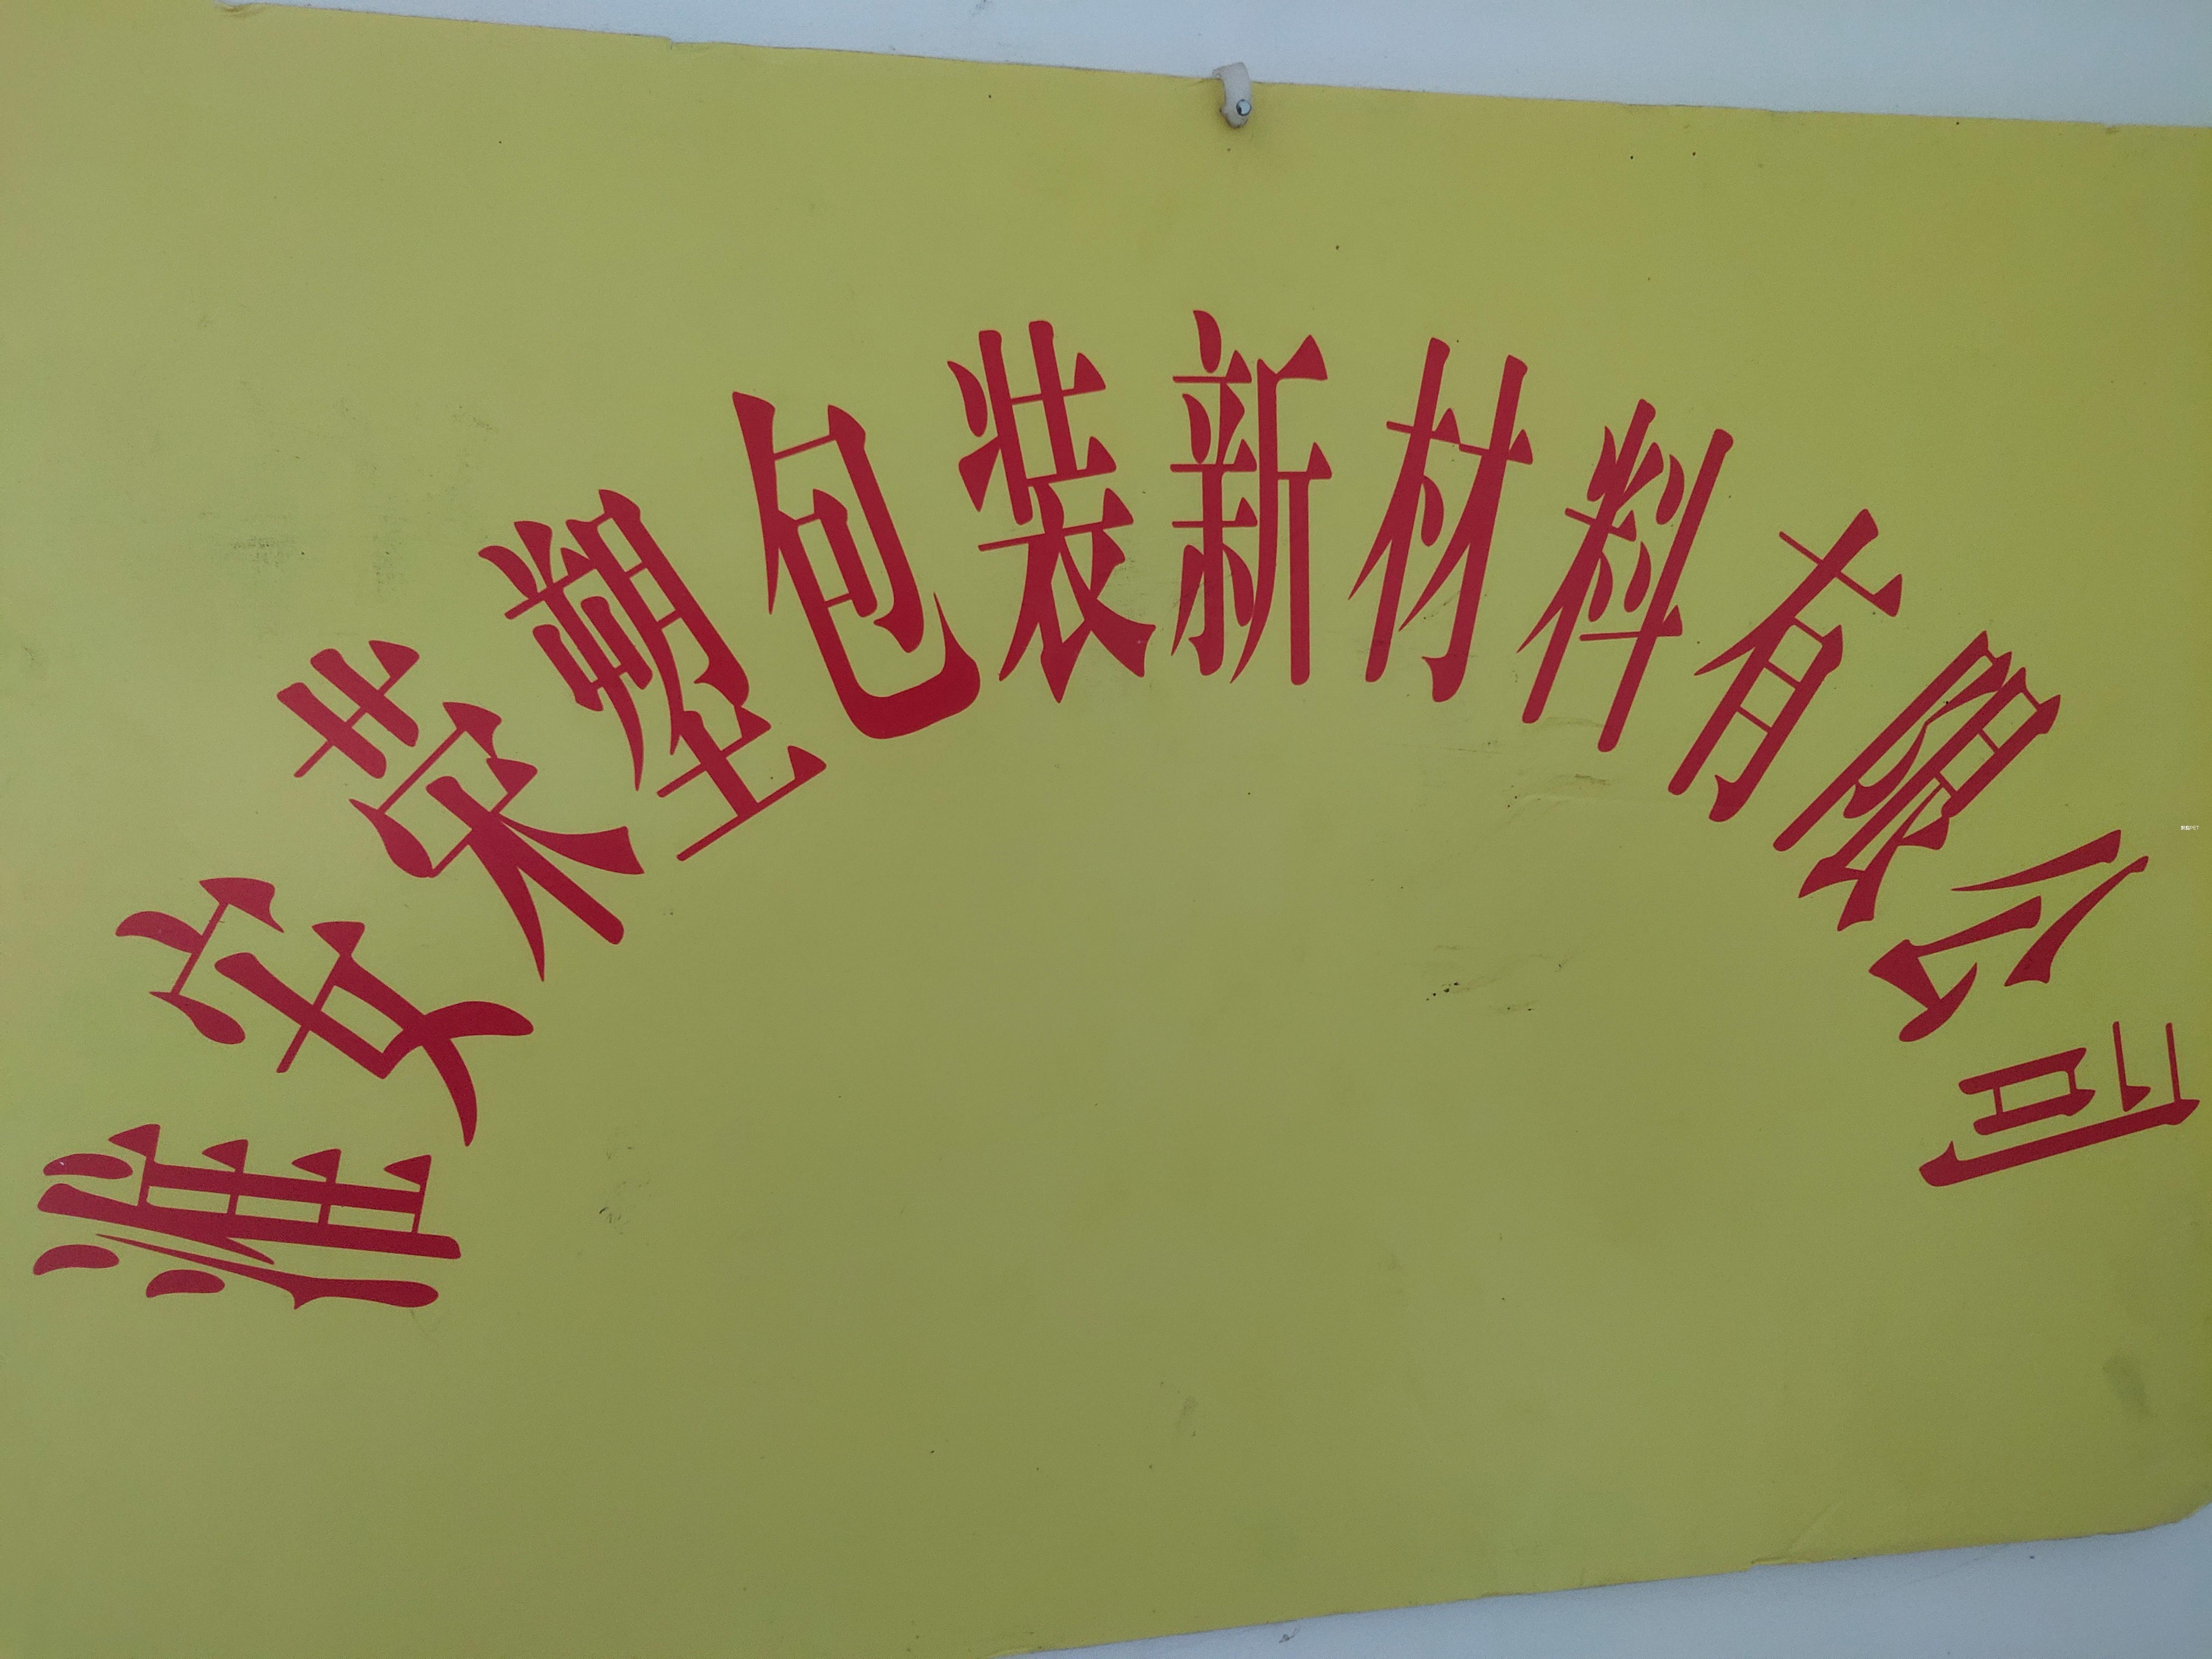 淮安荣塑包装新材料有限公司